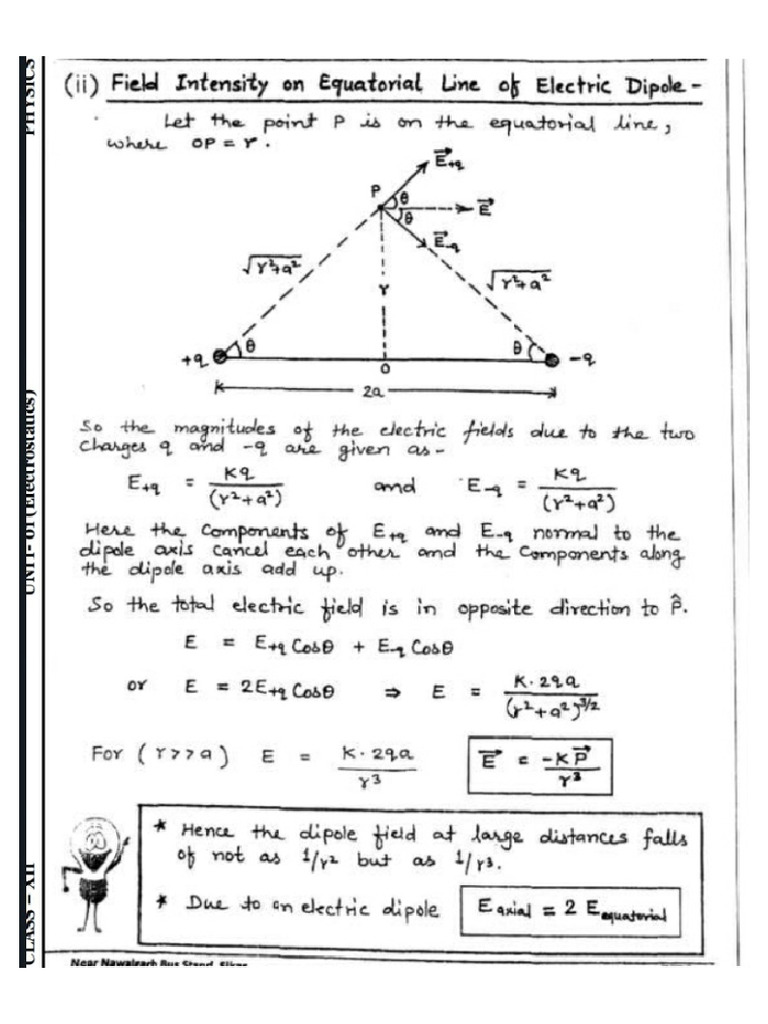 PHYSICS
UNIT- 01 (Electrostatics)
CLASS – XII
(ii) Field Intensity on Equatorial Line of Electric Dipole-
Let the point P is on the equatorial line,
where OP = r.
P
E⃗+q
θ
E⃗
θ
E⃗-q
√r²+a²
√r²+a²
r
+q
θ
θ
-q
O
2a
So the magnitudes of the electric fields due to the two
charges q and -q are given as-
E+q = Kq/(r²+a²) and E-q = Kq/(r²+a²)
Here the Components of E+q and E-q normal to the
dipole axis cancel each other and the Components along
the dipole axis add up.
So the total electric field is in opposite direction to P̂.
E = E+q Cosθ + E-q Cosθ
or E = 2E+q Cosθ ⇒ E = K·2qa/(r²+a²)^3/2
For (r>>a) E = K·2qa/r³ E⃗ = -KP⃗/r³
* Hence the dipole field at large distances falls
of not as 1/r² but as 1/r³.
* Due to an electric dipole E axial = 2 E equatorial
Near Nawalgarh Bus Stand, Sikar